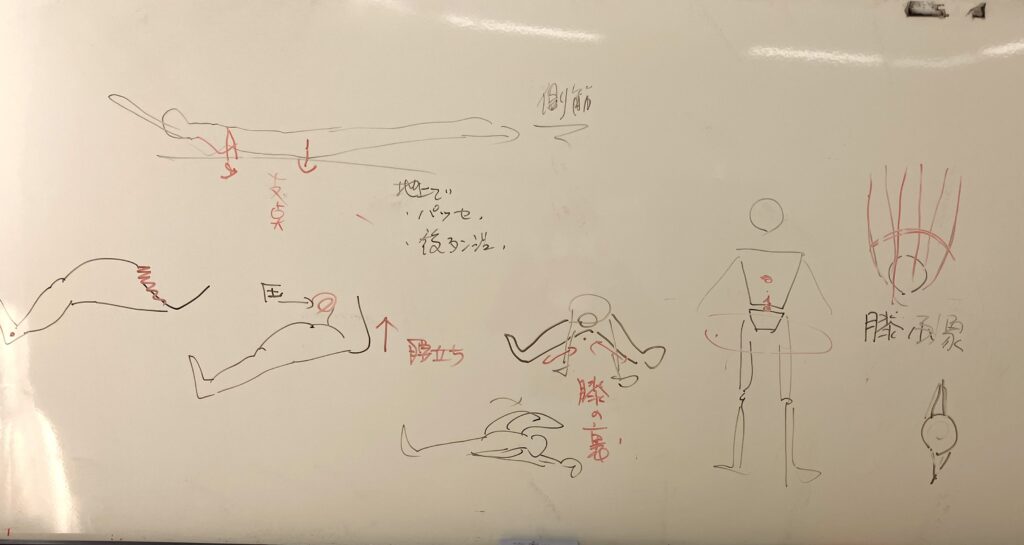 側筋
支点
地上で
・パッセ.
・後タンジュ.
圧
腰立ち
膝の裏
膝